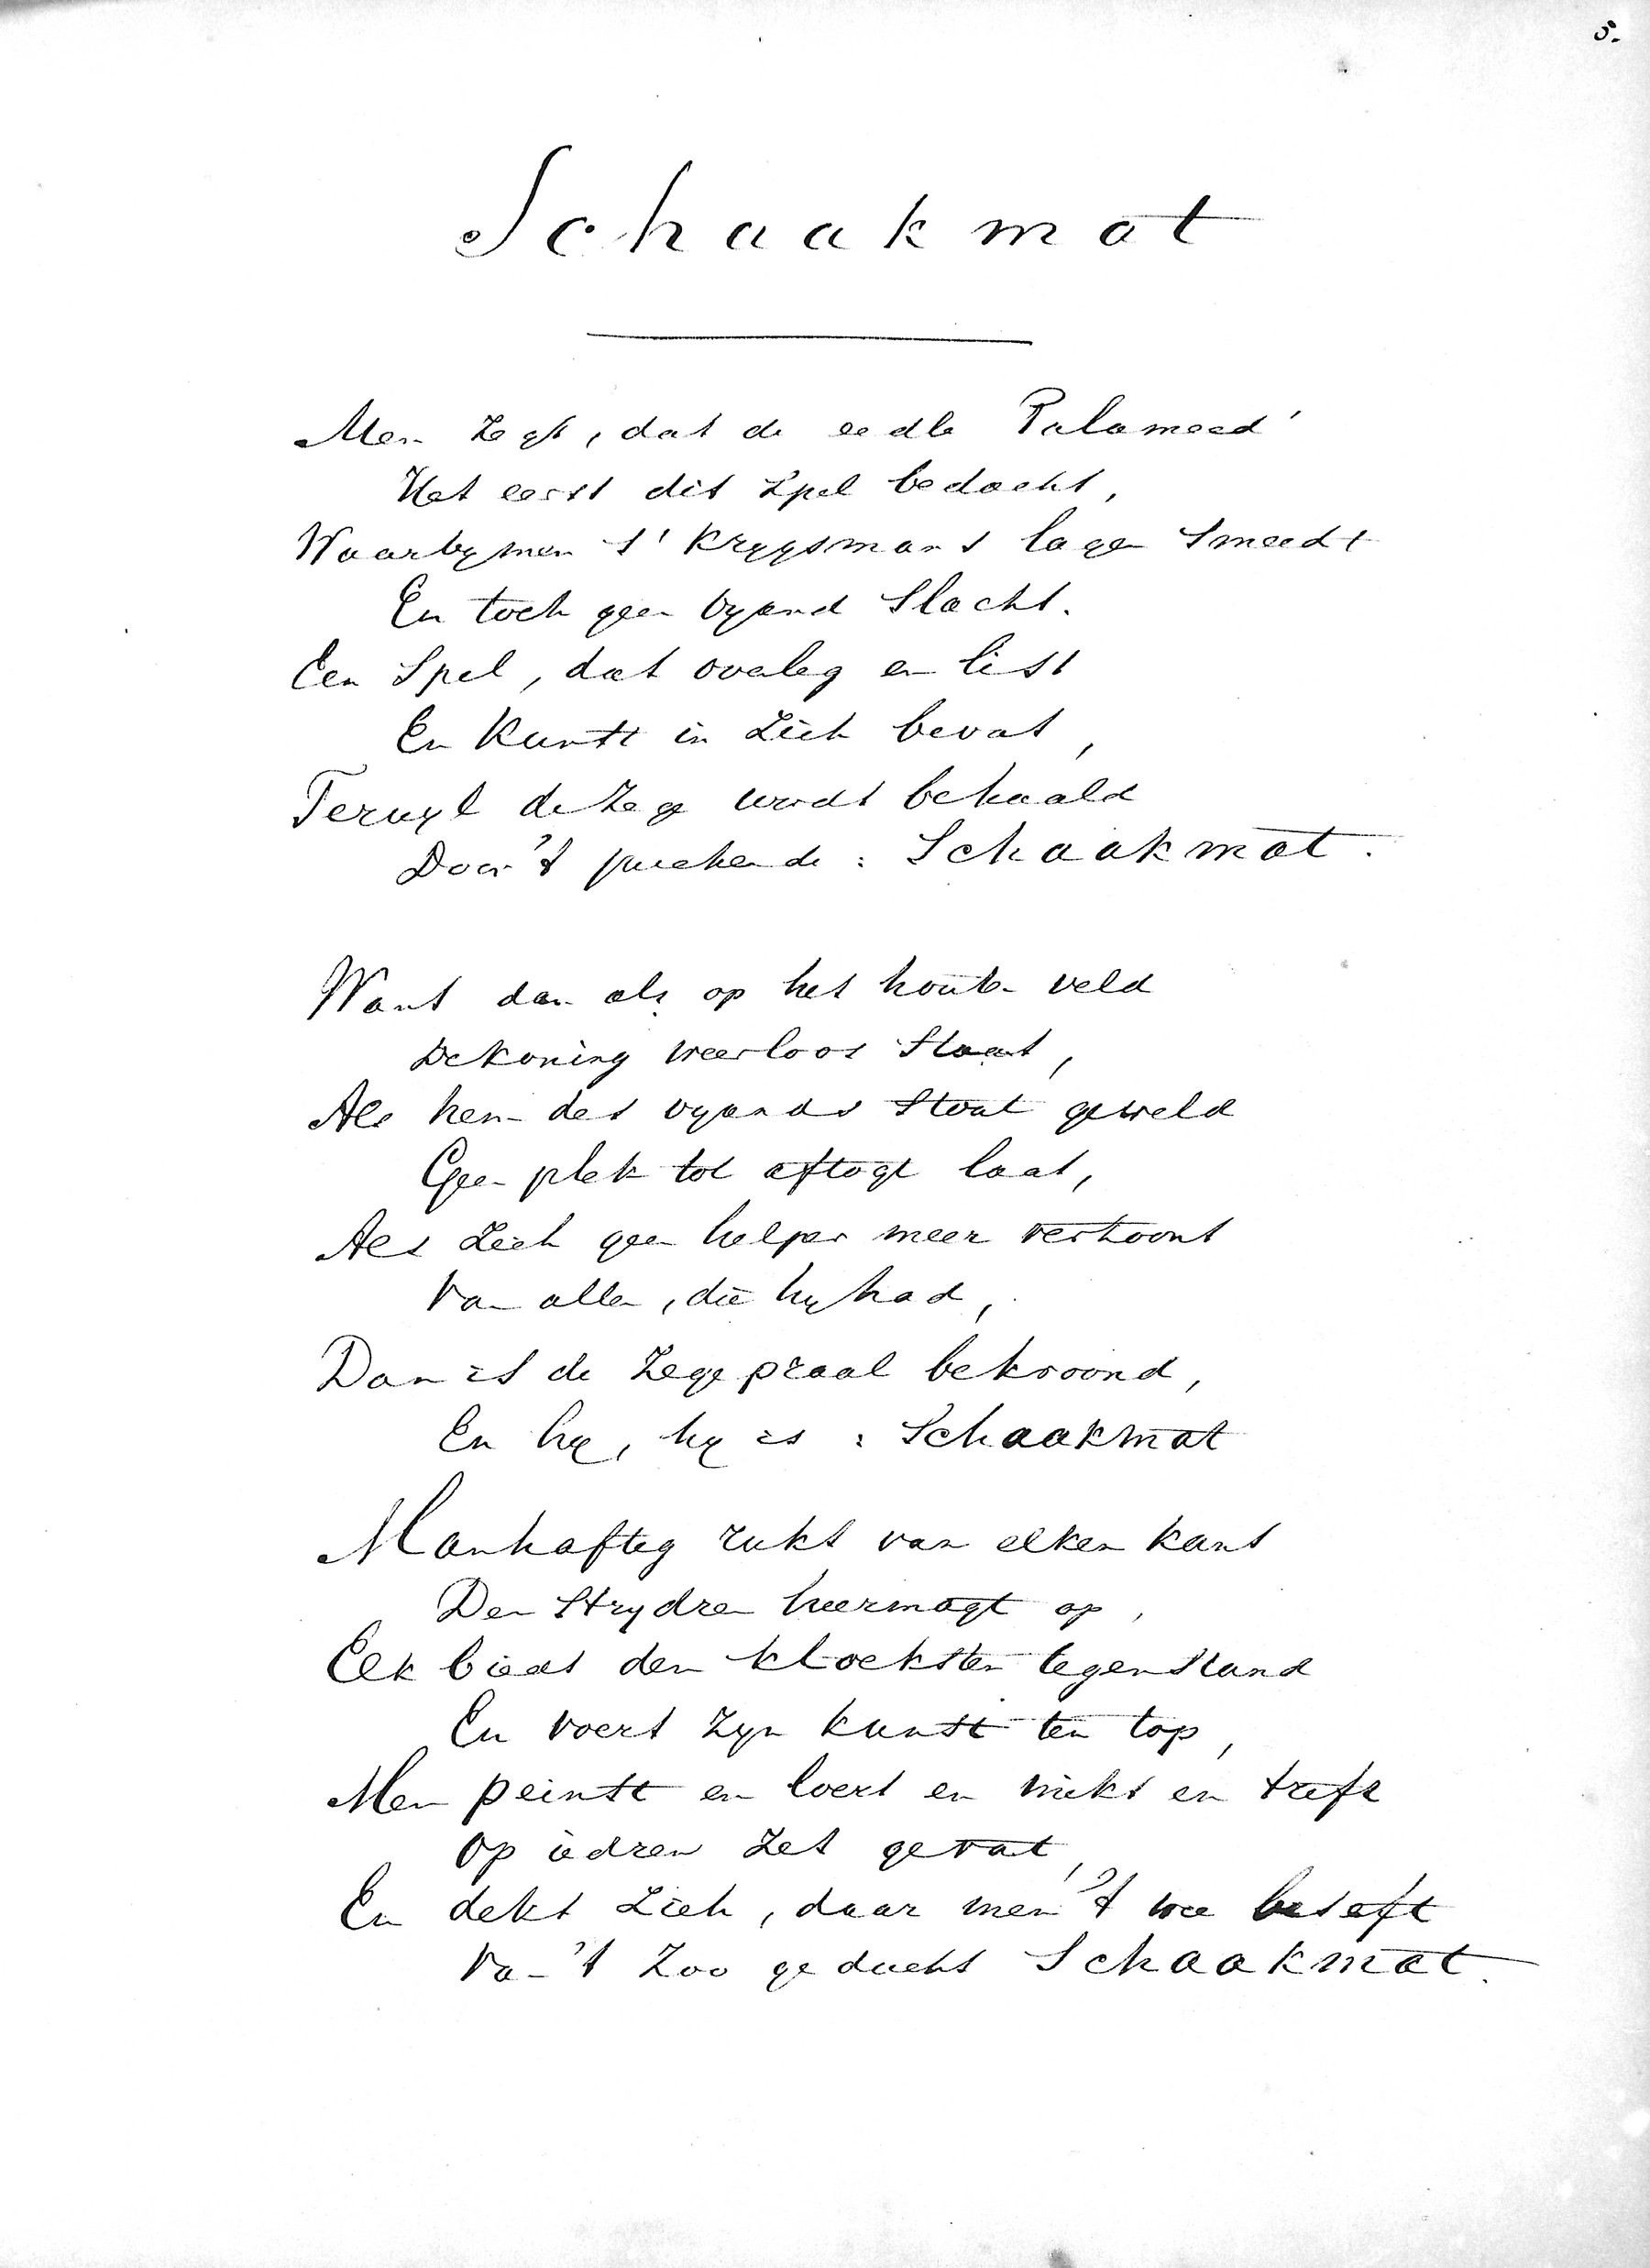 5.
Schaakmat
Men zegt, dat de eedle Palameed'
Het eerst dit spel bedacht,
Waarbymen s' Krygsmans lagen smeedt
En toch geen vyand slacht.
Een Spel, dat overleg en list
En Kunst in Zich bevat,
Terwyl de Zege wordt behaald
Door 't : Schaakmat.
Want dan als op het houten veld
De Koning weerloos Staat,
Als hem des vyands Stout geweld
Geen plek tot aftogt laat,
Als Zich geen helper meer vertoont
Van allen, die hy had,
Dan is de Zegepraal bekroond,
En hy, hy is : Schaakmat
Manhaftig rukt van elken kant
Der Strydren heermagt op,
Elk biedt den kloeksten tegenstand
En voert Zyn Kunst ten top,
Men peinst en loert en mikt en treft
Op iedren Zet gevat,
En dekt Zich, daar men 't wee beseft
Van 't Zoo geducht Schaakmat.